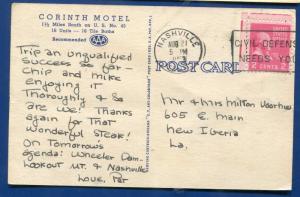 CORINTH MOTEL
1½ Miles South on U. S. No. 45
18 Units - 18 Tile Baths
Recommended AAA
Trip an unqualified
success so far -
chip and mike
enjoying it
Thoroughly & so
are we! Thanks
again for That
wonderful steak!
On Tomorrow's
agenda: Wheeler Dam-
Lookout Mt. & Nashville
Love, Pat
NASHVILLE
AUG 21
5 PM
CIVIL DEFENSE
NEEDS YOU
2 CENTS 2
POST CARD
Mr & Mrs Milton Voorhies
605 E. Main
New Iberia
La.